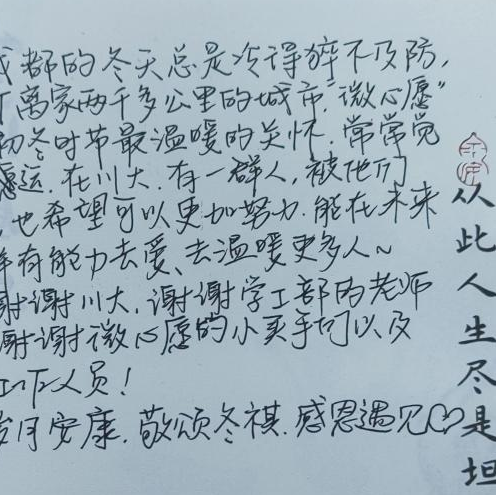 成都的冬天总是冷得猝不及防，
离家两千多公里的城市，“微心愿”
初冬时节最温暖的关怀，常常觉
幸运，在川大，有一群人，被他们
，也希望可以更加努力，能在未来
样有能力去爱、去温暖更多人~
谢谢川大，谢谢学工部的老师
谢谢微心愿的小买手们以及
工作人员！
岁月安康，敬颂冬祺，感恩遇见♡
从此人生尽是坦